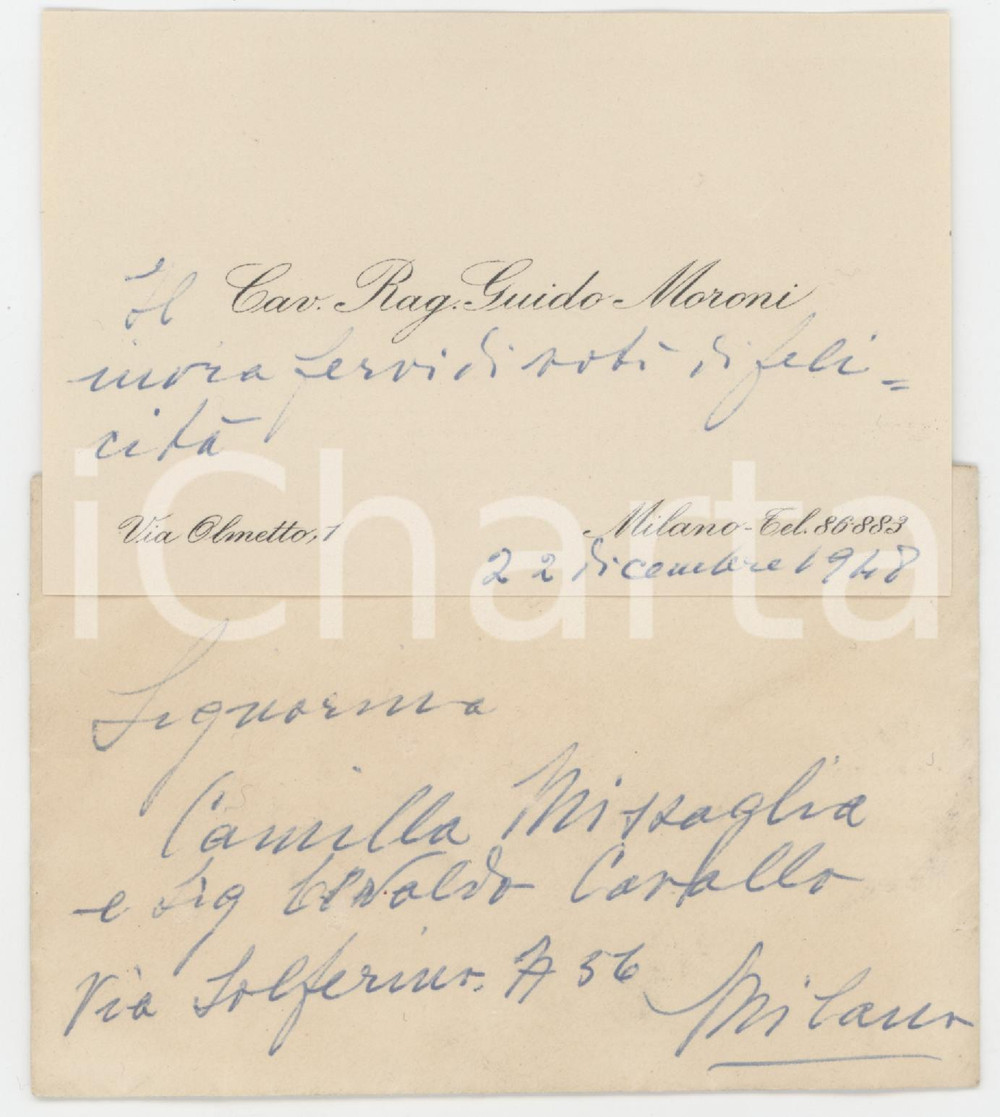 Il Cav. Rag. Guido Moroni
invia fervidi voti di feli=
cità
Via Olmetto, 1 Milano - Tel. 86-883
22 dicembre 1948
iCharta
Signorina
Camilla Missaglia
e Sig Osvaldo Cavallo
Via Solferino, 56
Milano